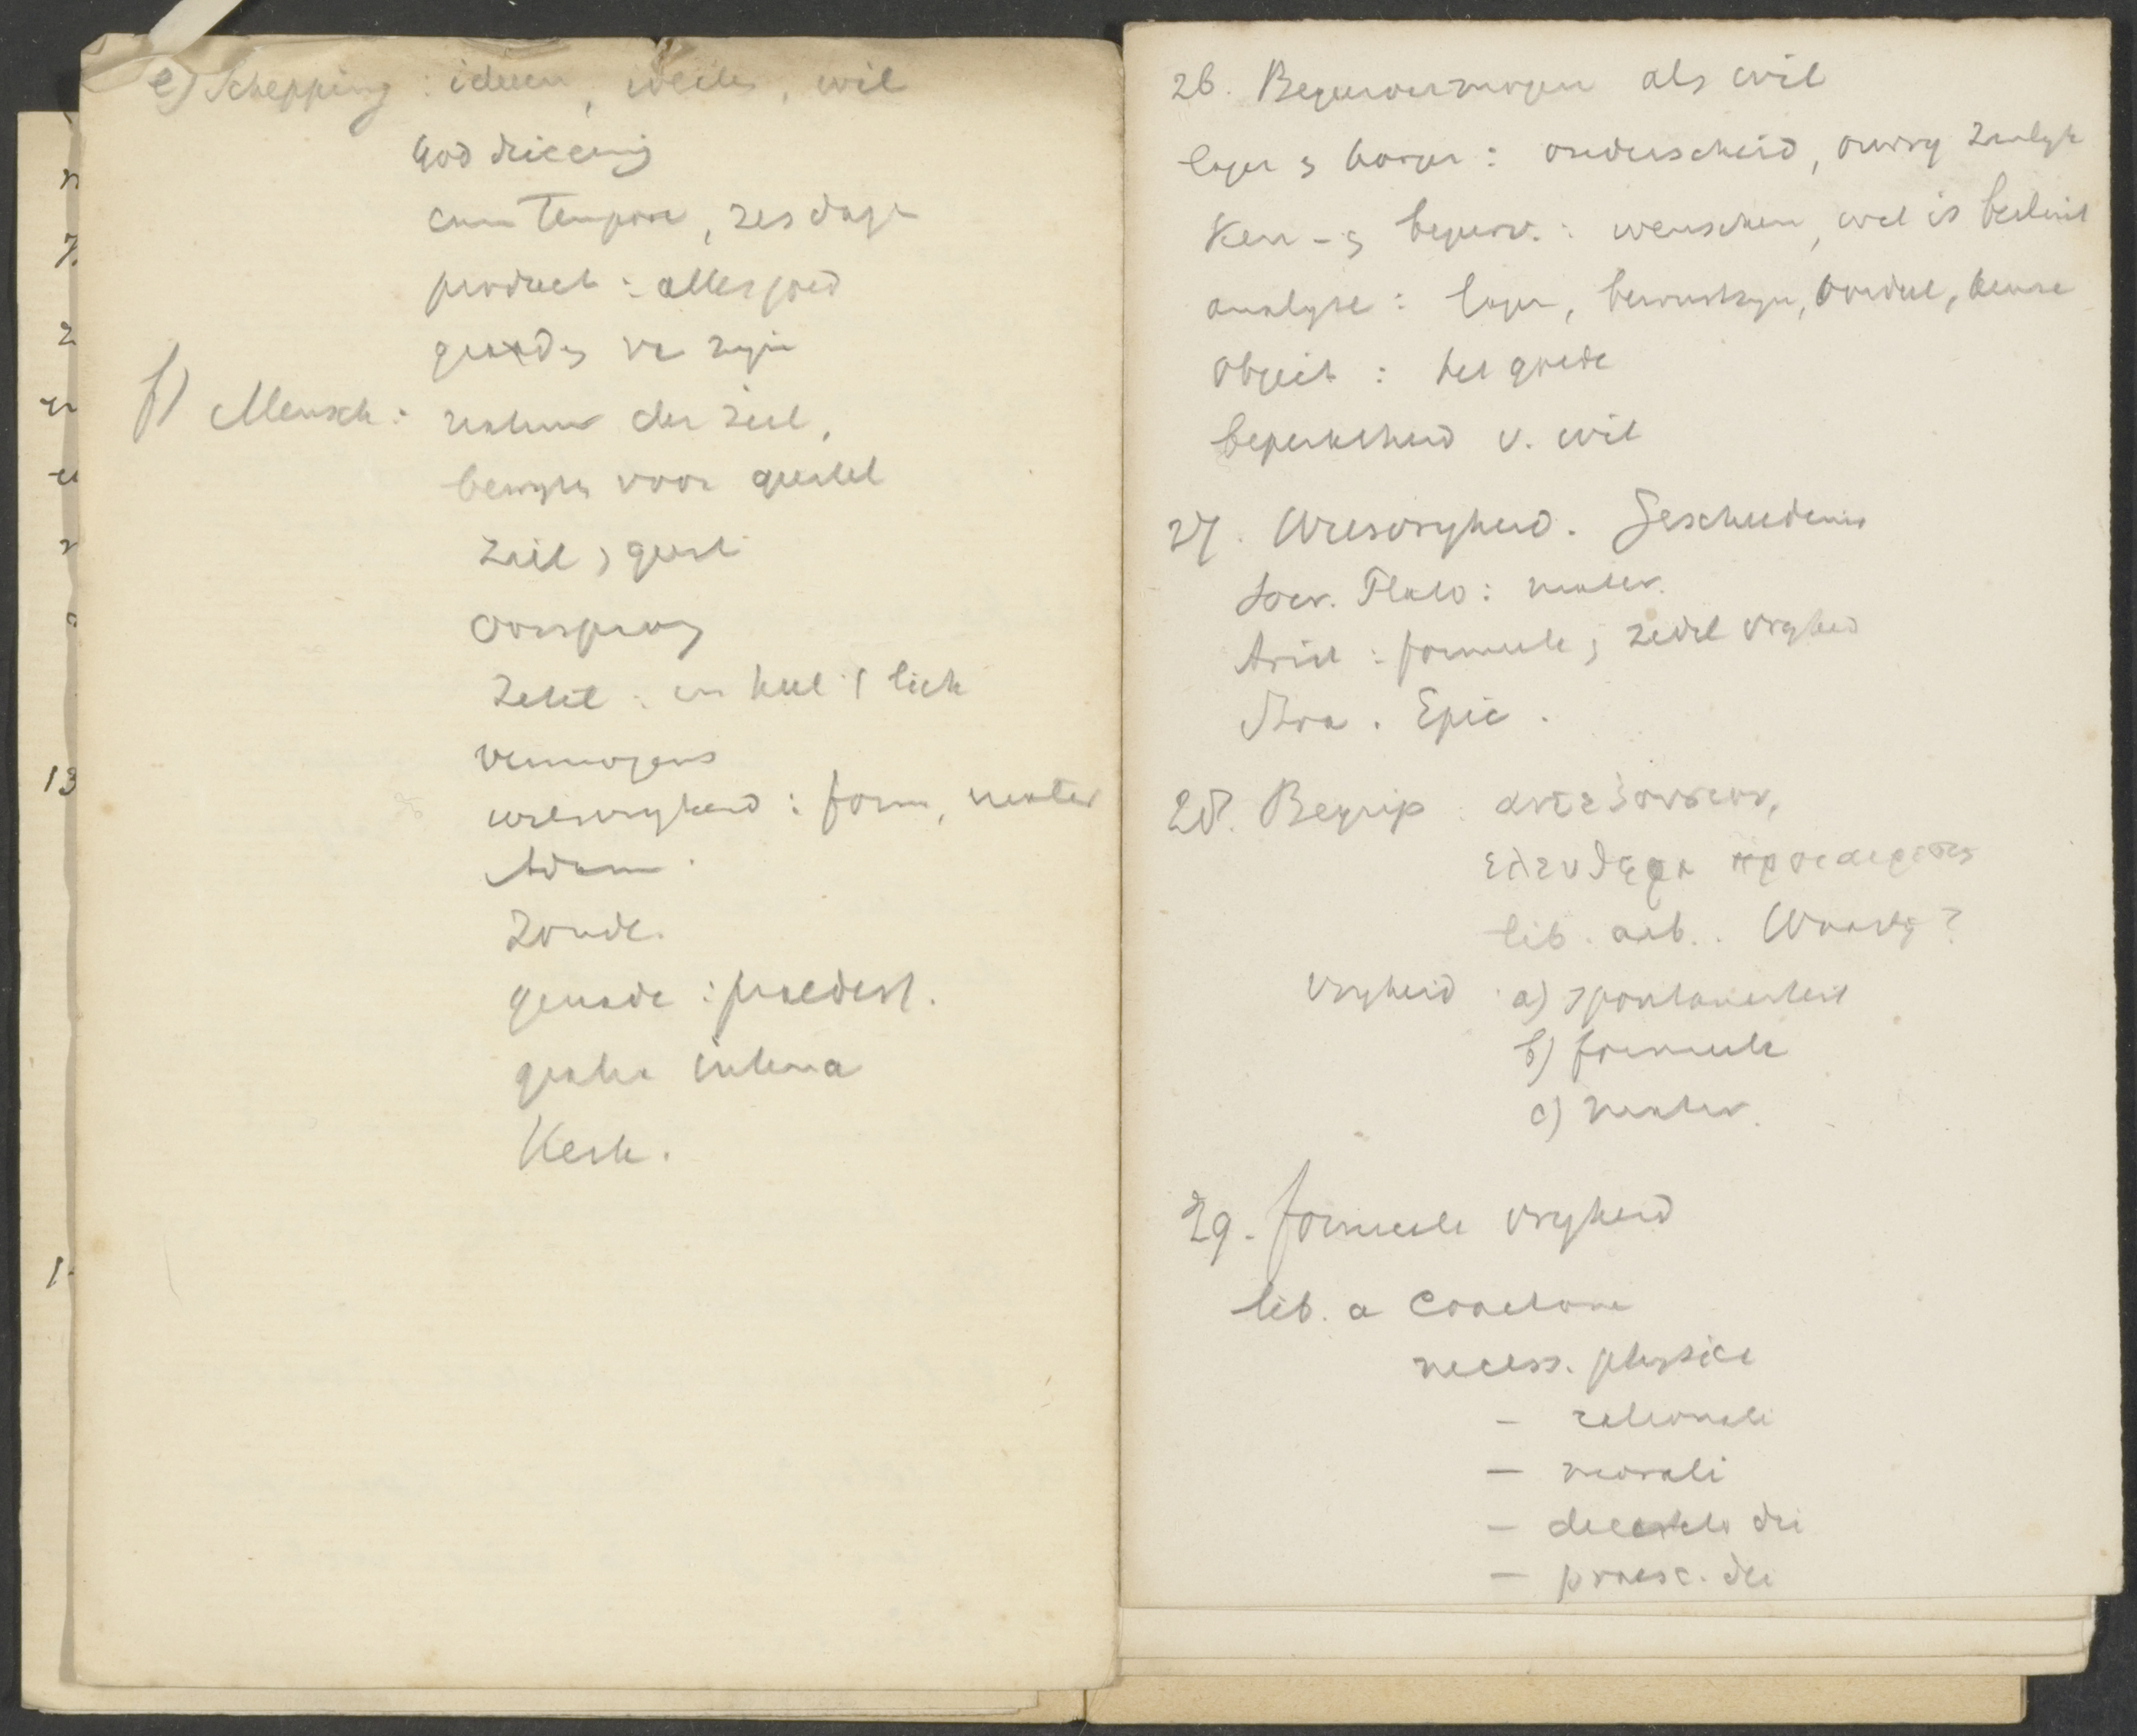 e) Schepping : ideeen, wil
God drieeenig
cum Tempore, zes dagen
product : alles goed
f) Mensch : natuur der ziel,
bewyzen voor
ziel, geest
Oorsprong
Zetel : in heel 't lich
vermogens
wilsvryheid : form, mater
Adam.
Zonde.
genade : praedest.
gratia interna
Kerk.
26. Begeervermogen als wil
lager & hooger : onderscheid,
Ken- & begeerv. : wenschen, wil is besluit
analyse : lager, bewustzyn, oordeel, keuze
Object : het goede
beperktheid v. wil
27. Wilsvryheid. Geschiedenis
Socr. Plato : mater.
Arist : formeele, zedel vryheid
Stoa. Epic.
28. Begrip : αυτεξουσιον,
ελευθερα προαιρεσις
lib. arb.. Waardig?
Vryheid : a) spontaneiteit
b) formeele
c) mater.
29. formeele vryheid
lib. a coactione
necess. physica
— rationali
— morali
— decreto dei
— praesc. dei